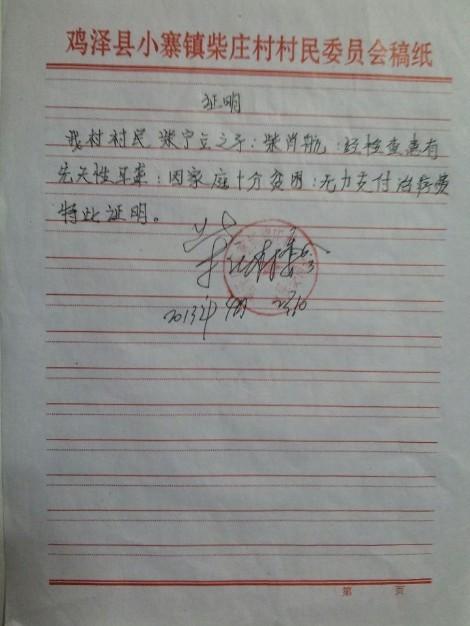 鸡泽县小寨镇柴庄村村民委员会稿纸
证明
我村村民 柴宁立之子：柴肖航：经检查患有
先天性耳聋：因家庭十分贫困：无力支付治疗费
特此证明。
柴庄村委会
2013年
第 页